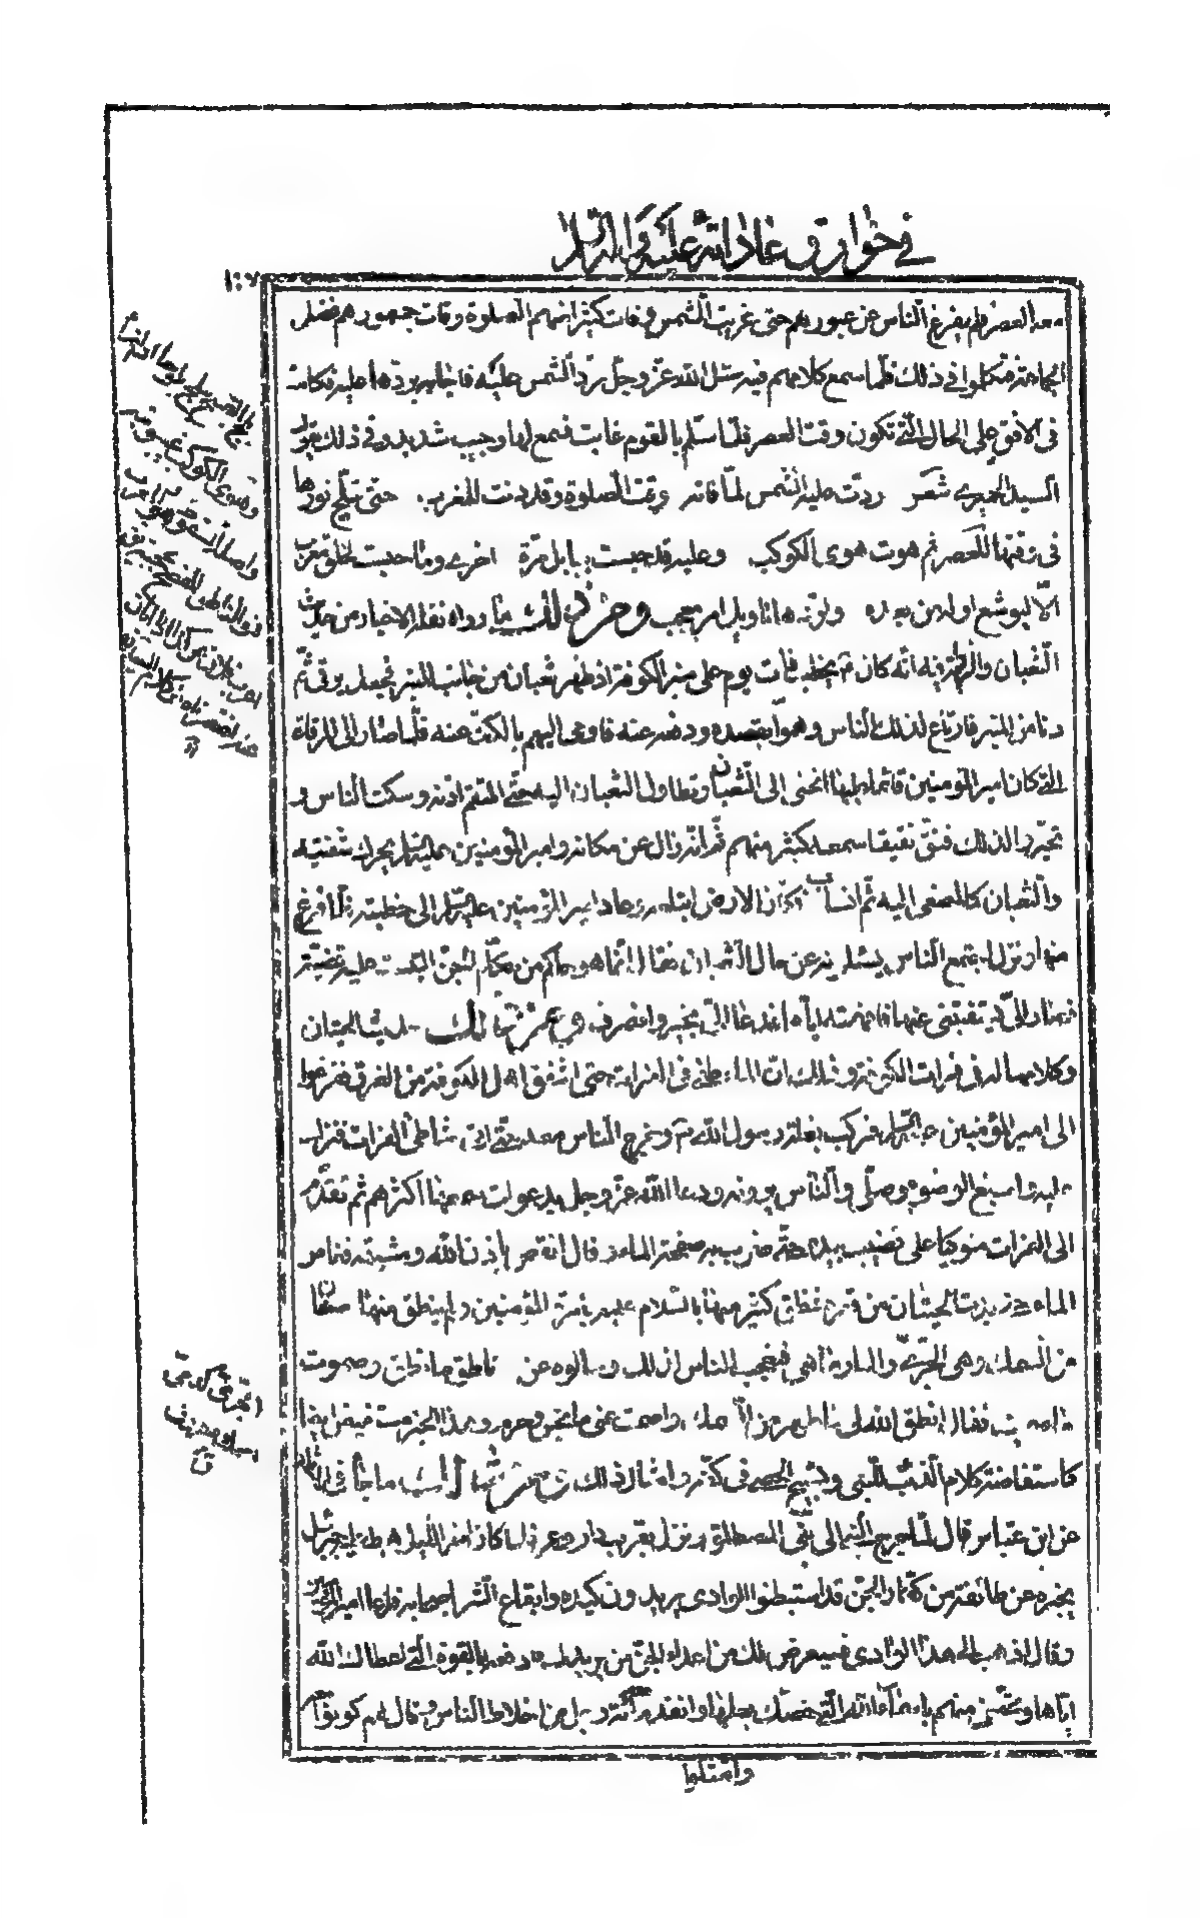 في خوارق عاداته عليه والسلام
١٠٧
معه العصر فلم يفرغ الناس من عبورهم حتى غربت الشمس وفات كثيرا منهم الصلوة وفات جمهورهم فضل
الجماعة فتكلموا في ذلك فلما سمع كلامهم فيه سئل الله عز وجل رد الشمس عليه فاجابه بردها عليه فكانت
في الافق على الحال التي تكون وقت العصر فلما سلم بالقوم غابت فسمع لها وجيب شديد وفي ذلك يقول
السيد الحميري شعر ردت عليه الشمس لما فاته وقت الصلوة وقد دنت للمغرب حتى تبلج نورها
في وقتها للعصر ثم هوت هوى الكوكب وعليه قد حبست ببابل مرة اخرى وما حبست لخلق معرب
الا ليوشع اوله من بعده ولردها تاويل امر معجب ومن ذلك ما رواه نقلة الاخبار من حديث
الثعبان والاية فيه انه كان ع يخطب ذات يوم على منبر الكوفة اذ ظهر ثعبان من جانب المنبر فجعل يرقى ثم
دنا من المنبر فارتاع لذلك الناس وهموا بقصده ودفعه عنه فاومى اليهم بالكف عنه فلما صار الى المرقاة
التي كان امير المؤمنين قائما عليها انحنى الى الثعبان وتطاول الثعبان اليه حتى التقم اذنه وسكت الناس و
تحيروا لذلك فنق نقيقا سمعه كثير منهم ثم انه زال عن مكانه وامير المؤمنين عليه السلم يحرك شفتيه
والثعبان كالمصغى اليه ثم انساب وكان الارض ابتلعته وعاد امير المؤمنين عليه السلم الى خطبته فلما فرغ
منها ونزل اجتمع الناس يسئلونه عن حال الثعبان فقال انما هو حاكم من حكام الجن التبست عليه قضية
فصار الى يستفتيني عنها فافهمته اياه فدعا الى بخير وانصرف ومن ذلك حديث الحيتان
وكلامها له في فرات الكوفة وذلك ان الماء طغى في الفرات حتى اشفق اهل الكوفة من الغرق ففزعوا
الى امير المؤمنين عليه السلم فركب بغلة رسول الله ص وخرج الناس معه حتى اتى شاطئ الفرات فنزل
عليه واسبغ الوضوء وصلى والناس يرونه ودعا الله عز وجل بدعوات سمعها اكثرهم ثم تقدم
الى الفرات متوكيا على قضيب بيده حتى ضرب به صفحة الماء وقال انقص باذن الله ومشيته فغاص
الماء حتى بدت الحيتان من قعره فنطق كثير منها بالسلام عليه بامرة المؤمنين ولم ينطق منها اصناف
من السمك وهى الجرى والمارماهي فتعجب الناس لذلك وسالوه عن ناطق ما نطق وصموت
ما صمت فقال انطق الله لى ما طهر من السمك واصمت عنى ما نجس وحرمه وهذا الخبر مستفيض ايضا
كاستفاضة كلام الذئب للنبي وتسبيح الحصى في كفه وامثال ذلك ومن ذلك ما جاء في الاثار
عن ابن عباس قال لما خرج النبي الى بنى المصطلق ونزل بقرب واد وعر فلما كان اخر الليل هبط عليه جبرئيل
يخبره عن طائفة من كفار الجن قد استبطنوا الوادى يريدون كيده وايقاع الشر باصحابه فدعا امير المؤمنين
وقال اذهب الى هذا الوادي فسيعرض لك من اعداء الجن من يريدك فادفعه بالقوة التي اعطاك الله
اياها وتحصن منهم باسماء الله التي خصك بعلمها وانفذ معه مائة رجل من اخلاط الناس وقال لهم كونوا معه
وامتثلوا